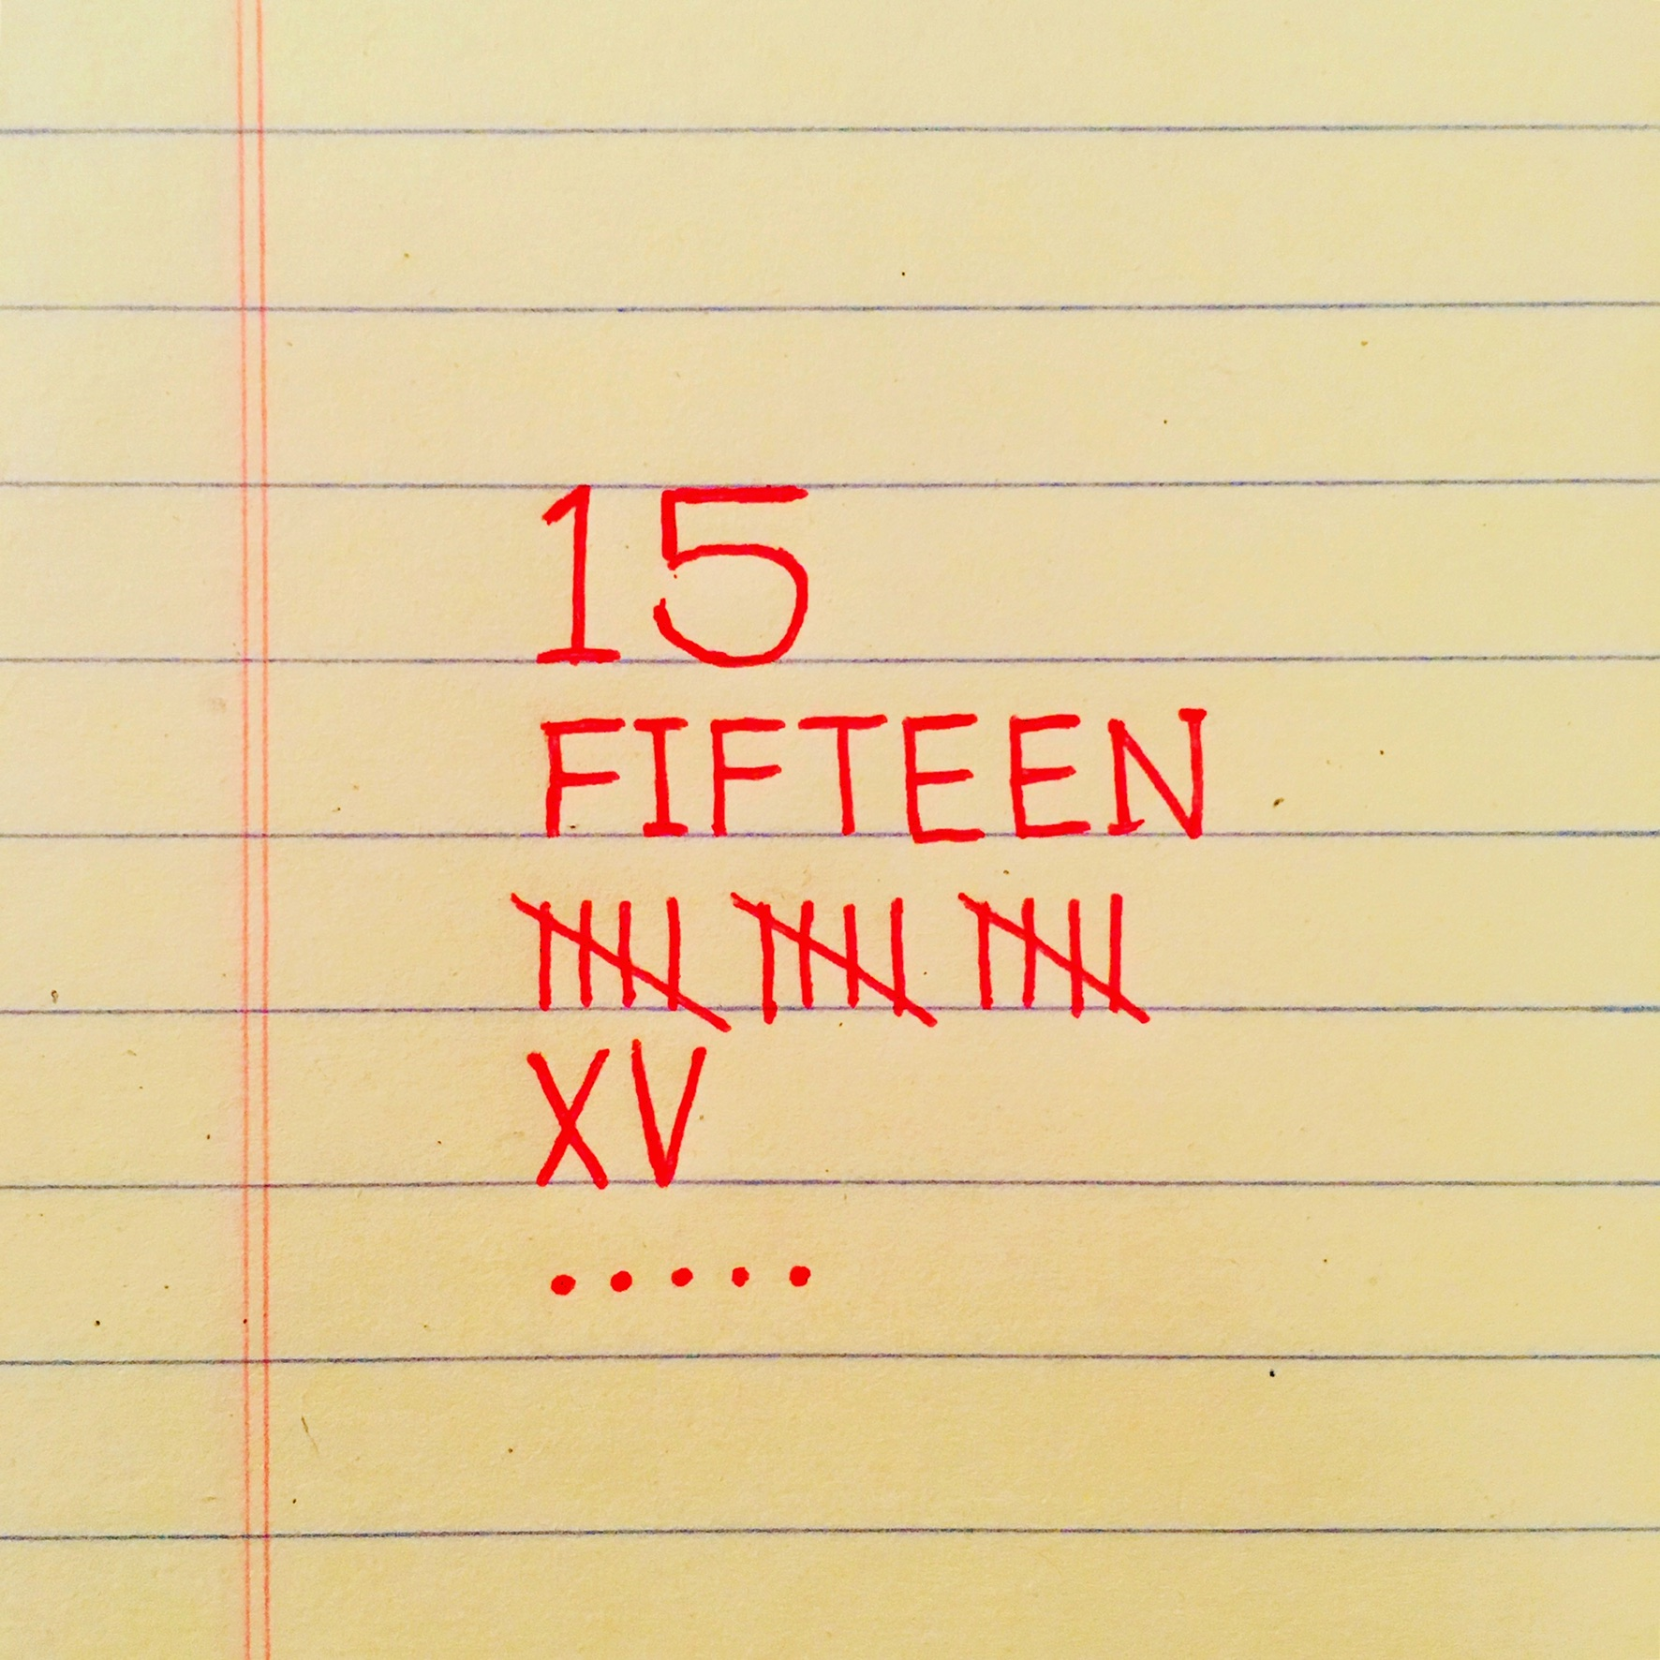 15
FIFTEEN
卌 卌 卌
XV
.....